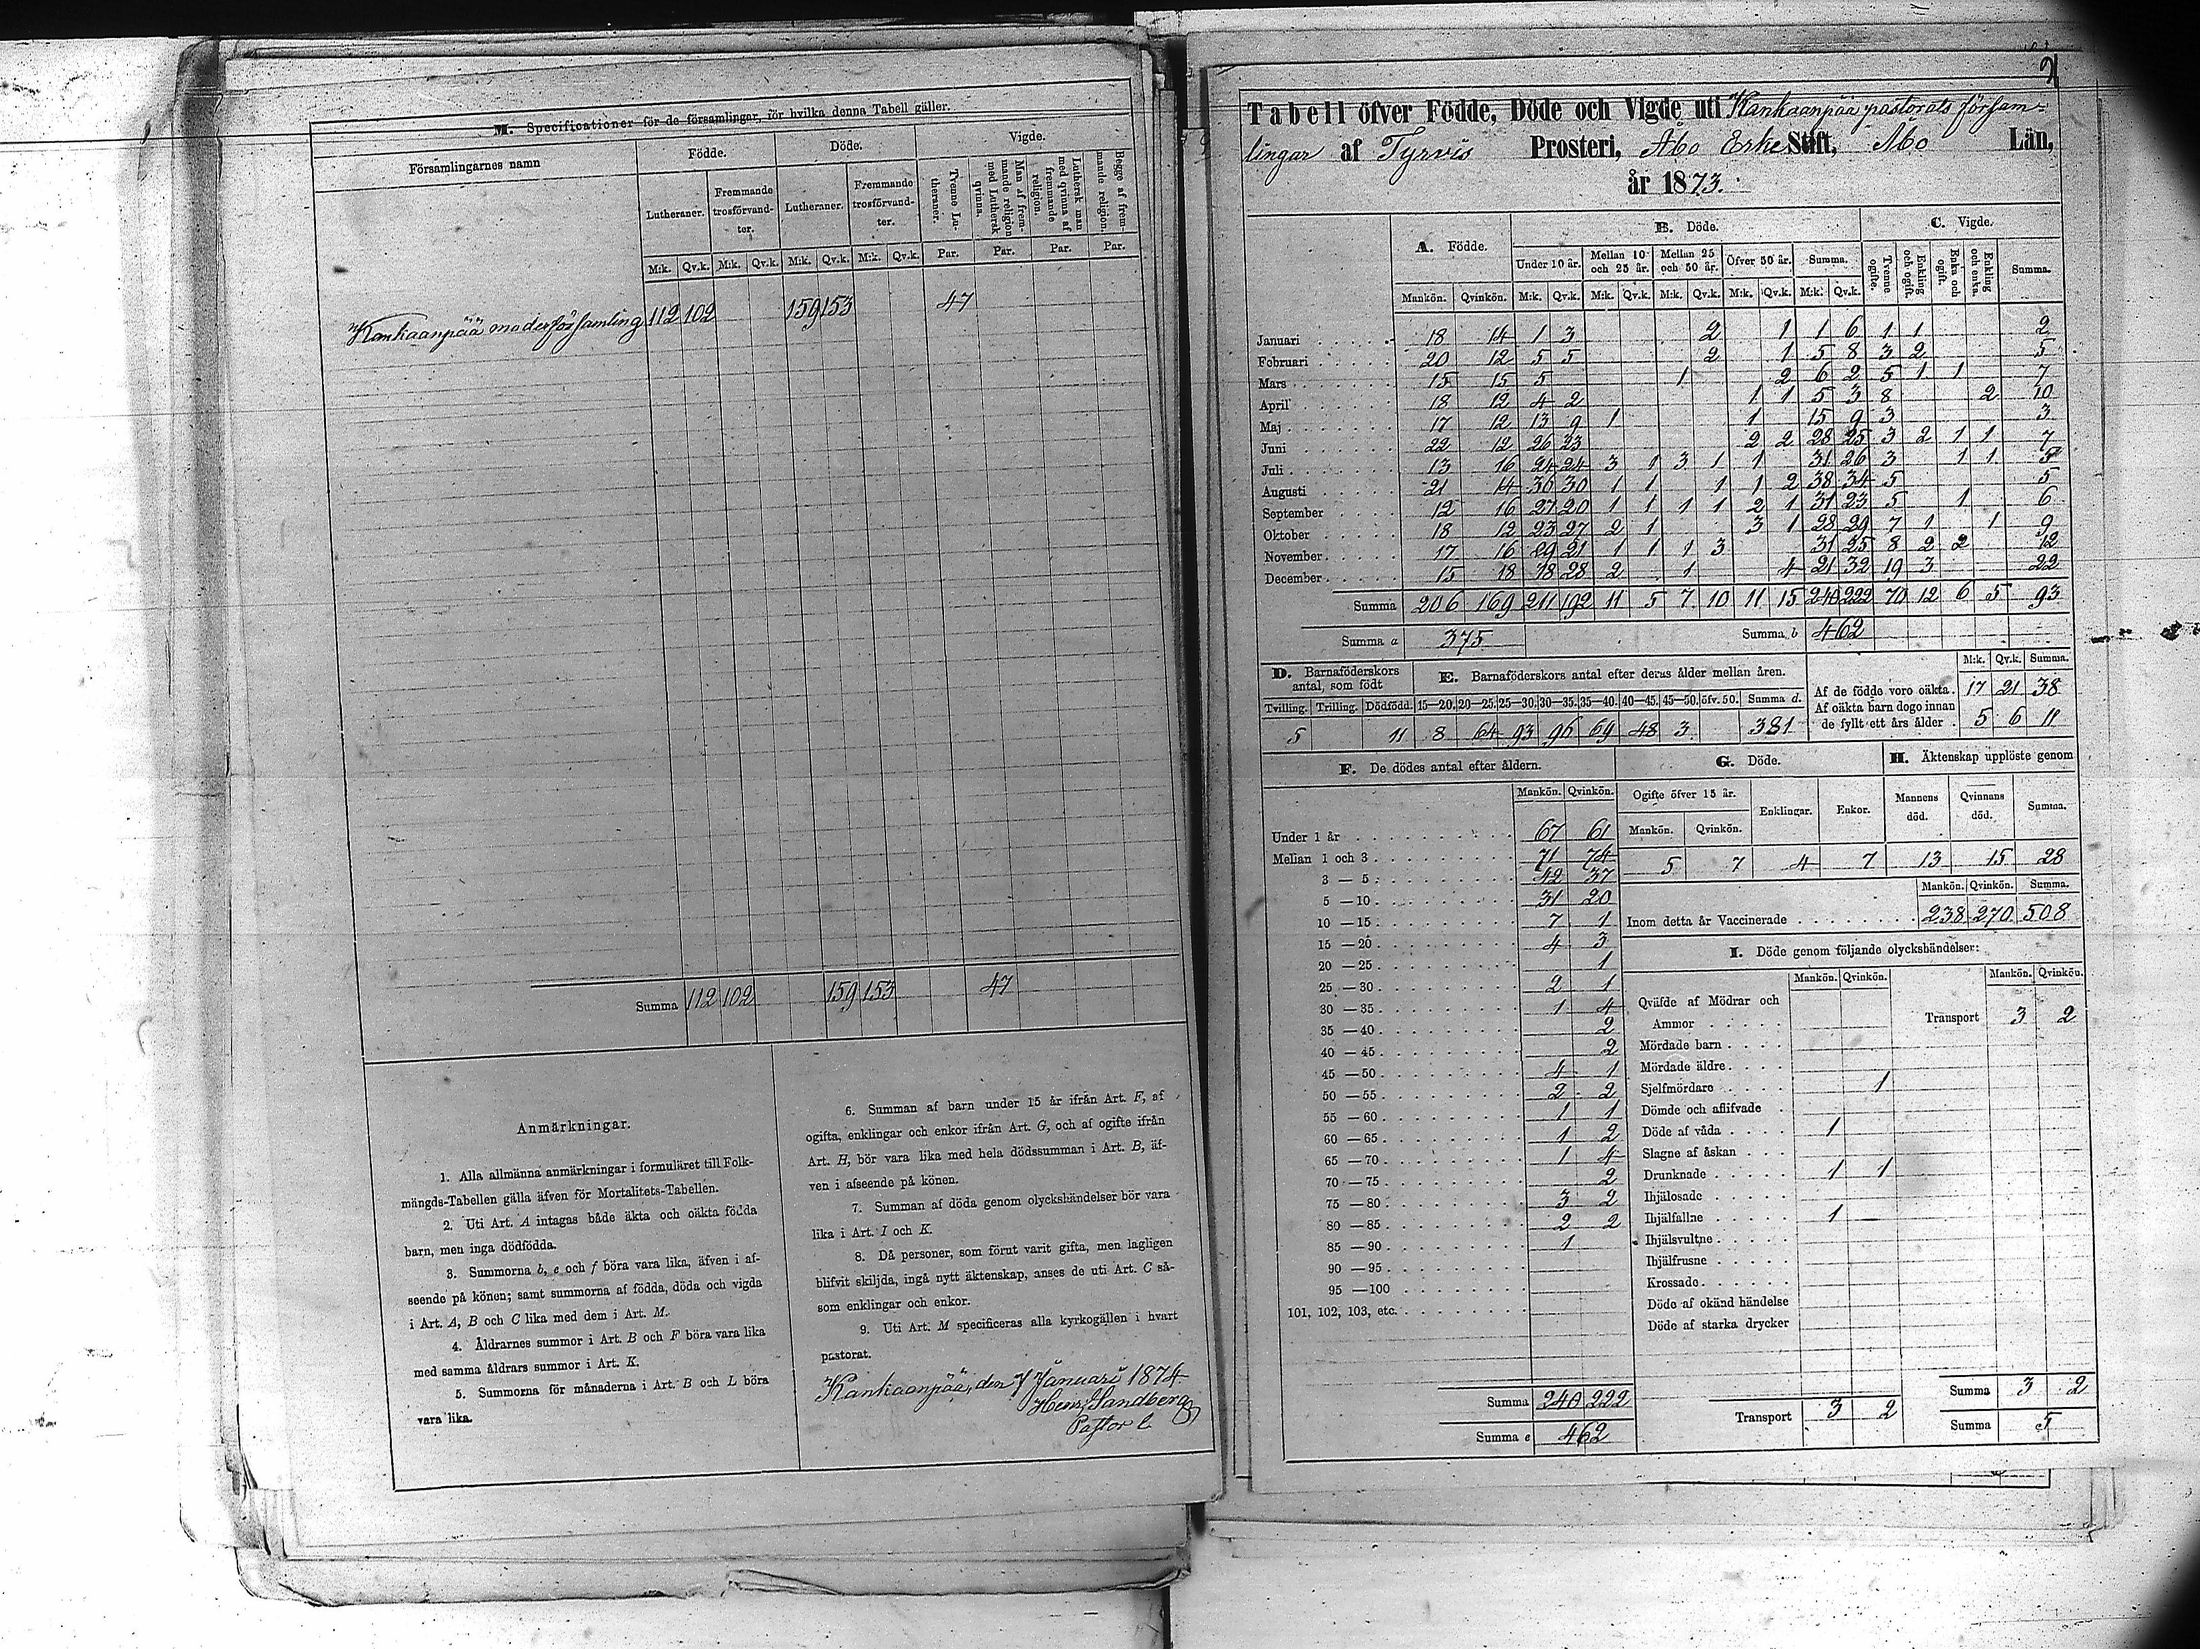 M. Specificationer för de församlingar, för hvilka denna Tabell gäller.
Församlingarnes namn
Födde. Döde. Vigde.
Lutheraner. Fremmande trosförvandter. Lutheraner. Fremmande trosförvandter. Tvenne Lutheraner. Man af fremmande religion med Luthersk qvinna. Luthersk man med qvinna af fremmande religion. Begge af fremmande religion.
M:k. Qv.k. M:k. Qv.k. M:k. Qv.k. M:k. Qv.k. Par. Par. Par. Par.
Kankaanpää moderförsamling 112 102 159 153 47
Summa 112 102 159 153 47
Anmärkningar.
1. Alla allmänna anmärkningar i formuläret till Folk-
mängds-Tabellen gälla äfven för Mortalitets-Tabellen.
2. Uti Art. A intagas både äkta och oäkta födda
barn, men inga dödfödda.
3. Summorna b, e och f böra vara lika, äfven i af-
seende på könen; samt summorna af födda, döda och vigda
i Art. A, B och C lika med dem i Art. M.
4. Åldrarnes summor i Art. B och F böra vara lika
med samma åldrars summor i Art. K.
5. Summorna för månaderna i Art. B och L böra
vara lika.
6. Summan af barn under 15 år ifrån Art. F, af
ogifta, enklingar och enkor ifrån Art. G, och af ogifte ifrån
Art. H, bör vara lika med hela dödssumman i Art. B, äf-
ven i afseende på könen.
7. Summan af döda genom olyckshändelser bör vara
lika i Art. I och K.
8. Då personer, som förut varit gifta, men lagligen
blifvit skiljda, ingå nytt äktenskap, anses de uti Art. C så-
som enklingar och enkor.
9. Uti Art. M specificeras alla kyrkogällen i hvart
pastorat.
Kankaanpää, den 7 Januari 1874
Henr. Sandberg
Pastor
Tabell öfver Födde, Döde och Vigde uti Kankaanpää pastorats försam-
lingar af Tyrvis Prosteri, Åbo Erke Stift, Åbo Län,
år 1873.
A. Födde. B. Döde. C. Vigde.
Under 10 år. Mellan 10 och 25 år. Mellan 25 och 50 år. Öfver 50 år. Summa. Tvenne ogifte. Enkling och ogift. Enka och ogift. Enkling och enka. Summa.
Mankön. Qvinkön. M:k. Qv.k. M:k. Qv.k. M:k. Qv.k. M:k. Qv.k. M:k. Qv.k.
Januari 18 14 1 3 2 1 1 6 1 1 2
Februari 20 12 5 5 2 1 5 8 3 2 5
Mars 15 15 5 1 2 6 2 5 1 1 7
April 18 12 4 2 1 1 5 3 8 2 10
Maj 17 12 13 9 1 1 15 9 3 3
Juni 22 12 26 23 2 2 28 25 3 2 1 1 7
Juli 13 16 24 24 3 1 3 1 1 31 26 3 1 1 5
Augusti 21 14 36 30 1 1 1 1 2 38 34 5 5
September 12 16 27 20 1 1 1 1 2 1 31 23 5 1 6
Oktober 18 12 23 27 2 1 3 1 28 29 7 1 1 9
November 17 16 29 21 1 1 1 3 31 25 8 2 2 12
December 15 18 18 28 2 1 4 21 32 19 3 22
Summa 206 169 211 192 11 5 7 10 11 15 240 222 70 12 6 5 93
Summa a 375 Summa b 462
D. Barnaföderskors antal, som födt
E. Barnaföderskors antal efter deras ålder mellan åren.
M:k. Qv.k. Summa.
Tvilling. Trilling. Dödfödd. 15—20. 20—25. 25—30. 30—35. 35—40. 40—45. 45—50. öfv. 50. Summa d.
5 11 8 64 93 96 69 48 3 381
Af de födde voro oäkta. 17 21 38
Af oäkta barn dogo innan de fyllt ett års ålder. 5 6 11
F. De dödes antal efter åldern.
Mankön. Qvinkön.
Under 1 år 67 61
Mellan 1 och 3 71 74
3 — 5 42 37
5 —10 31 20
10 —15 7 1
15 —20 4 3
20 —25 1
25 —30 2 1
30 —35 1 4
35 —40 2
40 —45 2
45 —50 4 1
50 —55 2 2
55 —60 1 1
60 —65 1 2
65 —70 1 4
70 —75 2
75 —80 3 2
80 —85 2 2
85 —90 1
90 —95
95 —100
101, 102, 103, etc.
Summa 240 222
Summa e 462
G. Döde.
Ogifte öfver 15 år. Enklingar. Enkor.
Mankön. Qvinkön.
5 7 4 7
H. Äktenskap upplöste genom
Mannens död. Qvinnans död. Summa.
13 15 28
Mankön. Qvinkön. Summa.
Inom detta år Vaccinerade 238 270 508
I. Döde genom följande olyckshändelser:
Mankön. Qvinkön. Mankön. Qvinkön.
Qväfde af Mödrar och
Ammor
Mördade barn
Mördade äldre
Sjelfmördare 1
Dömde och aflifvade
Döde af våda 1
Slagne af åskan
Drunknade 1 1
Ihjälosade
Ihjälfallne 1
Ihjälsvultne
Ihjälfrusne
Krossade
Döde af okänd händelse
Döde af starka drycker
Transport 3 2
Transport 3 2
Summa 3 2
Summa 5